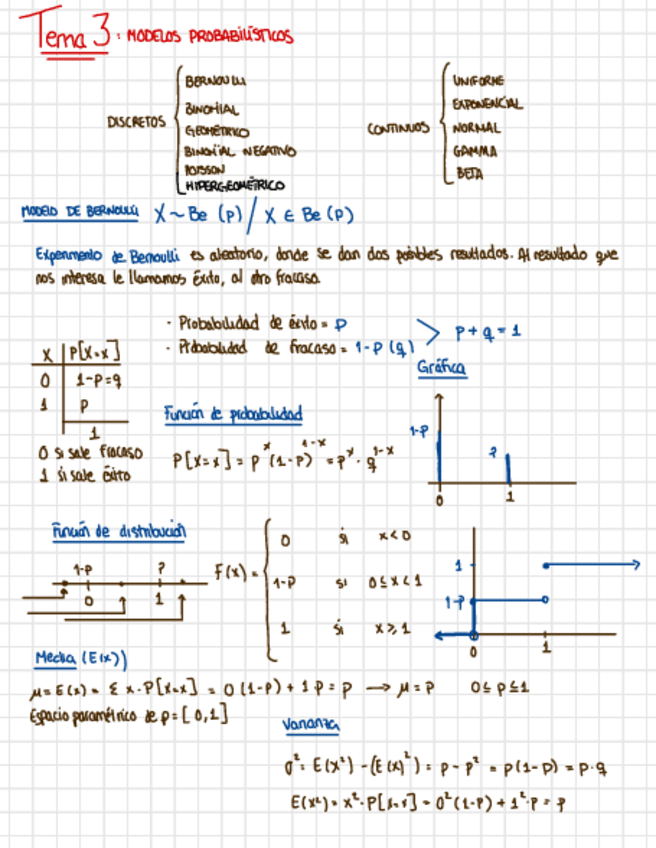 Tema 3: MODELOS PROBABILÍSTICOS
DISCRETOS
BERNOULLI
BINOMIAL
GEOMÉTRICO
BINOMIAL NEGATIVO
POISSON
HIPERGEOMÉTRICO
CONTINUOS
UNIFORME
EXPONENCIAL
NORMAL
GAMMA
BETA
MODELO DE BERNOULLI X ~ Be (p) / X ∈ Be (p)
Experimento de Bernoulli es aleatorio, donde se dan dos posibles resultados. Al resultado que
nos interesa le llamamos éxito, al otro fracaso.
· Probabilidad de éxito = p
· Probabilidad de fracaso = 1-p (q)
p + q = 1
X P[X=x]
0 1-p=q
1 p
1
0 si sale fracaso
1 si sale éxito
Función de probabilidad
P[X=x] = p^x (1-p)^1-x = p^x · q^1-x
Gráfica
1-p
p
0 1
Función de distribución
1-p p
0 1
F(x) =
0 si x<0
1-p si 0≤x<1
1 si x≥1
1
1-p
0 1
Media (E(x))
μ = E(x) = Σ x·P[X=x] = 0(1-p) + 1·p = p → μ = p 0≤p≤1
Espacio paramétrico de p = [0,1]
Varianza
σ² = E(x²) - (E(x)²) = p - p² = p(1-p) = p·q
E(x²) = x²·P[X=x] = 0²(1-p) + 1²·p = p